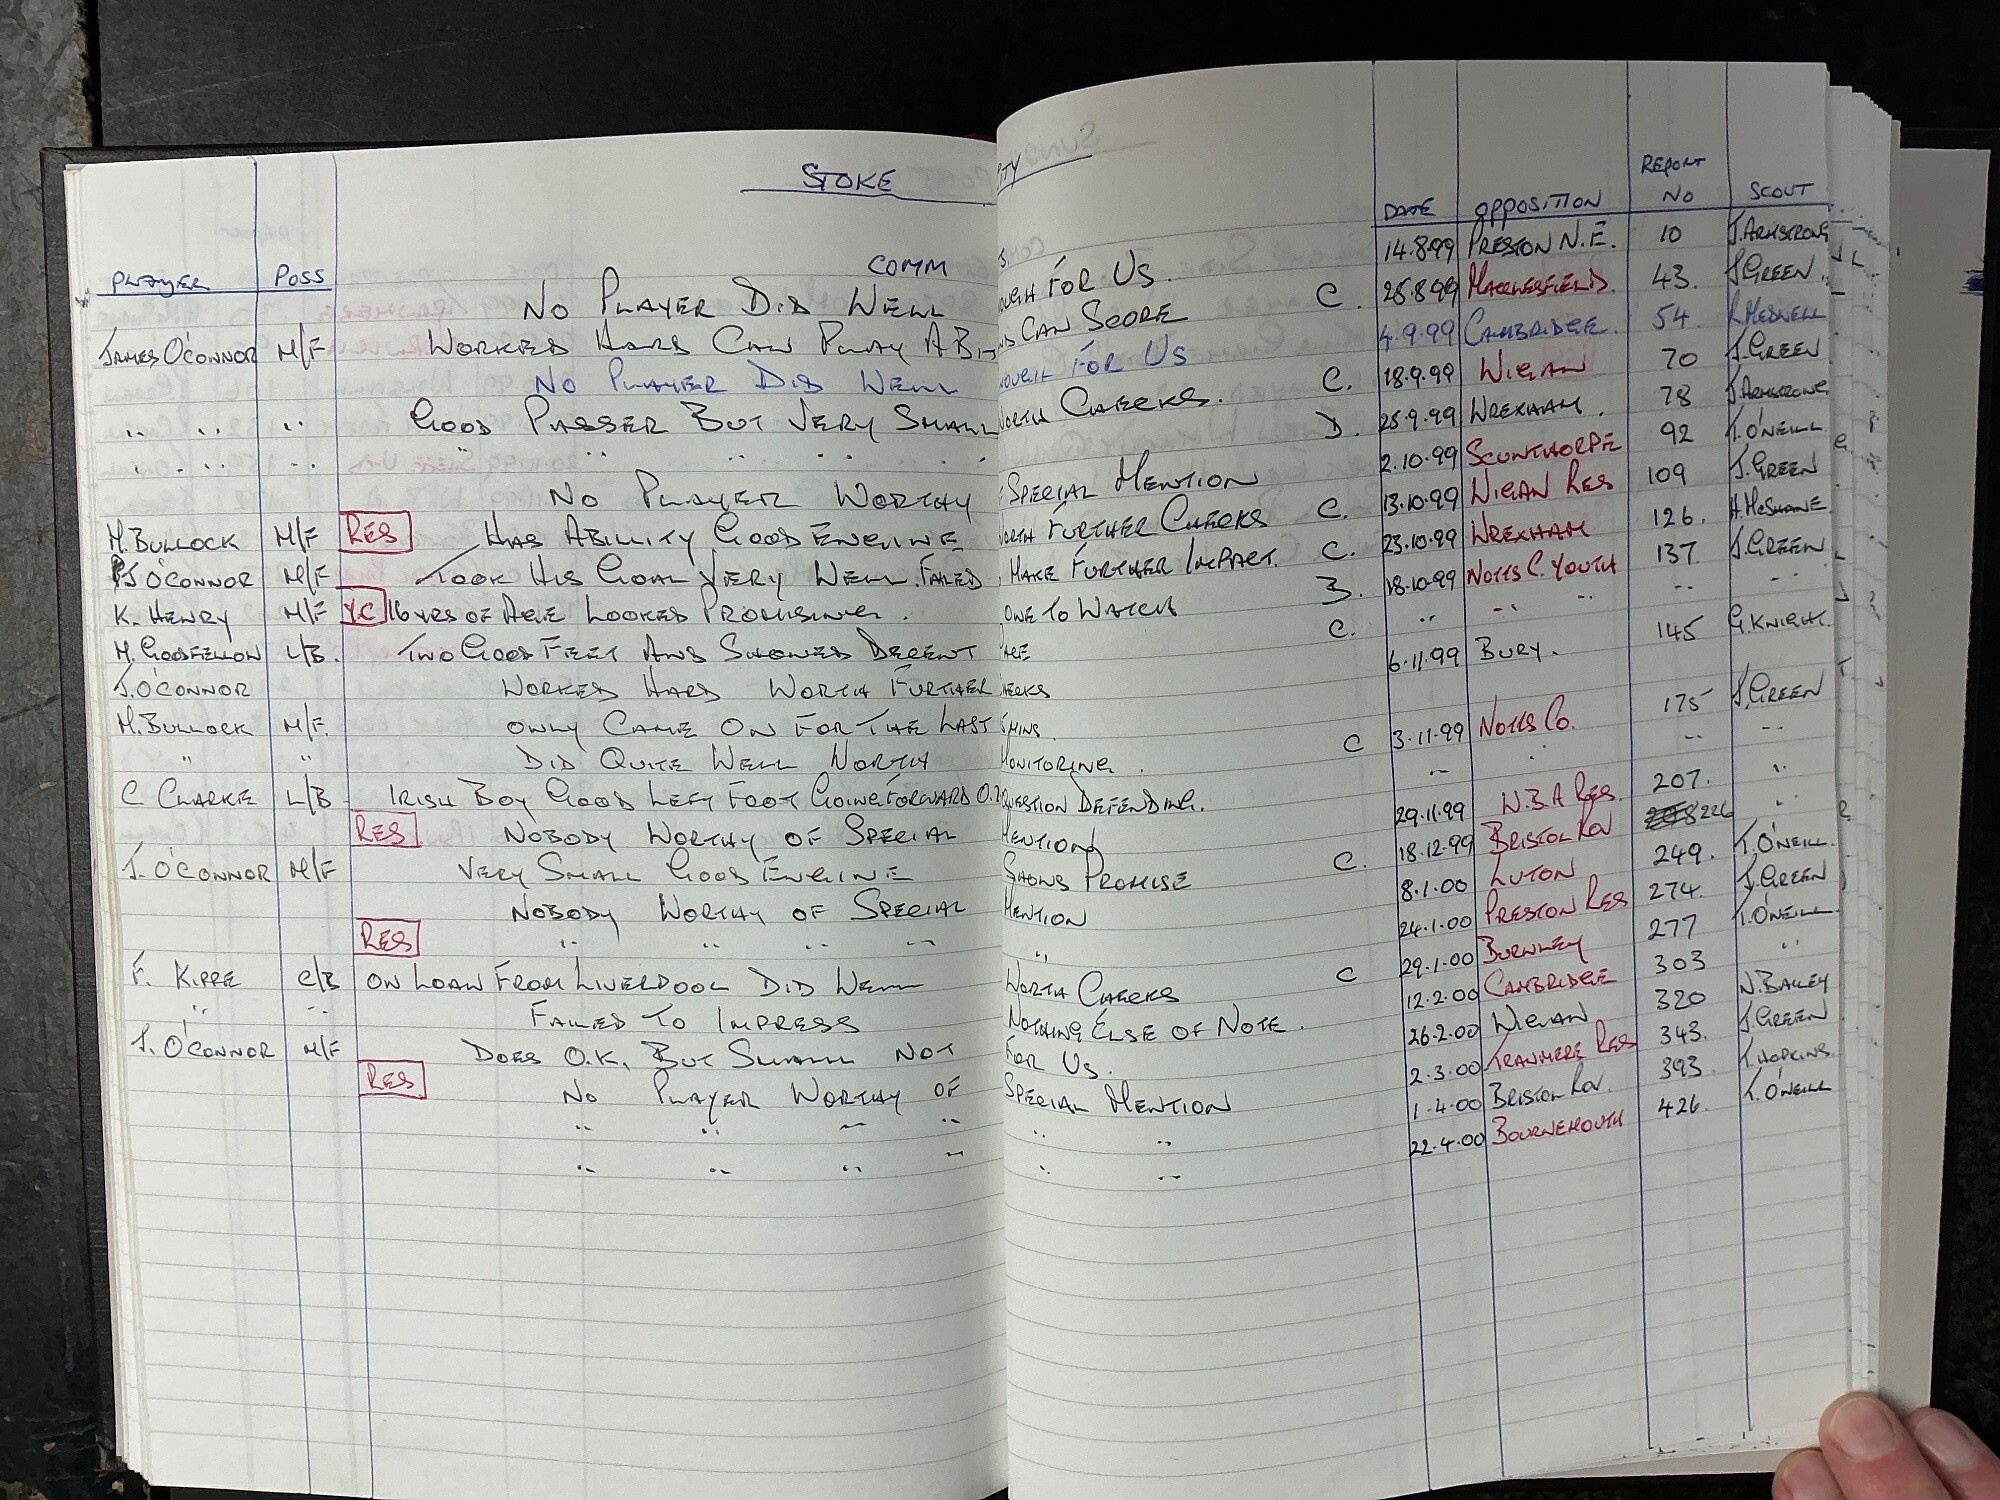 STOKE
PLAYER POSS COMM DATE OPPOSITION REPORT NO SCOUT
NO PLAYER DID WELL FOR US. 14.8.99 PRESTON N.E. 10 J.ARMSTRONG
JAMES O'CONNOR M/F WORKED HARD CAN PLAY A BIT CAN SCORE C. 28.8.99 MACCLESFIELD. 43. J.GREEN
NO PLAYER DID WELL FOR US 4.9.99 CAMBRIDGE. 54.
" " " GOOD PASSER BUT VERY SMALL WORTH CHECKS. C. 18.9.99 WIGAN 70 J.GREEN
" " " " " " " " D. 25.9.99 WREXHAM. 78 J.ARMSTRONG
NO PLAYER WORTHY SPECIAL MENTION 2.10.99 SCUNTHORPE 92 T.O'NEILL
M.BULLOCK M/F RES HAS ABILLITY GOOD ENGINE WORTH FURTHER CHECKS C. 13.10.99 WIGAN RES 109 J.GREEN
J O'CONNOR M/F TOOK HIS GOAL VERY WELL. FAILED MAKE FURTHER IMPACT. C. 23.10.99 WREXHAM 126. H.McSHANE
K. HENRY M/F YC 16 YRS OF AGE LOOKED PROMISING. ONE TO WATCH B. 18.10.99 NOTTS C. YOUTH 137. J.GREEN
M. GOODFELLOW L/B. TWO GOOD FEET AND SHOWED DECENT C. " " " " " "
J.O'CONNOR WORKED HARD WORTH FURTHER CHECKS 6.11.99 BURY. 145 G.KNIGHT.
M.BULLOCK M/F. ONLY CAME ON FOR THE LAST MINS.
" " DID QUITE WELL WORTH MONITORING. C 3.11.99 NOTTS CO. 175 J.GREEN
C CLARKE L/B IRISH BOY GOOD LEFT FOOT GOING FORWARD QUESTION DEFENDING. " " " "
RES NOBODY WORTHY OF SPECIAL MENTION 29.11.99 W.B.A RES. 207. "
J. O'CONNOR M/F VERY SMALL GOOD ENGINE SHOWS PROMISE C. 18.12.99 BRISTOL ROV 226 "
NOBODY WORTHY OF SPECIAL MENTION 8.1.00 LUTON 249. T.O'NEILL
RES " " " " " 24.1.00 PRESTON RES 274. J.GREEN
F. KIPPE C/B ON LOAN FROM LIVERPOOL DID WELL WORTH CHECKS C 29.1.00 BURNLEY 277 T.O'NEILL
" " FAILED TO IMPRESS NOTHING ELSE OF NOTE. 12.2.00 CAMBRIDGE 303 "
J. O'CONNOR M/F DOES O.K. BUT SMALL NOT FOR US. 26.2.00 WIGAN 320 N.BAILEY
RES NO PLAYER WORTHY OF SPECIAL MENTION 2.3.00 TRANMERE RES 343. J.GREEN
" " " " " " 1.4.00 BRISTOL ROV. 393 T.HOPKINS
" " " " " " 22.4.00 BOURNEMOUTH 426. T.O'NEILL